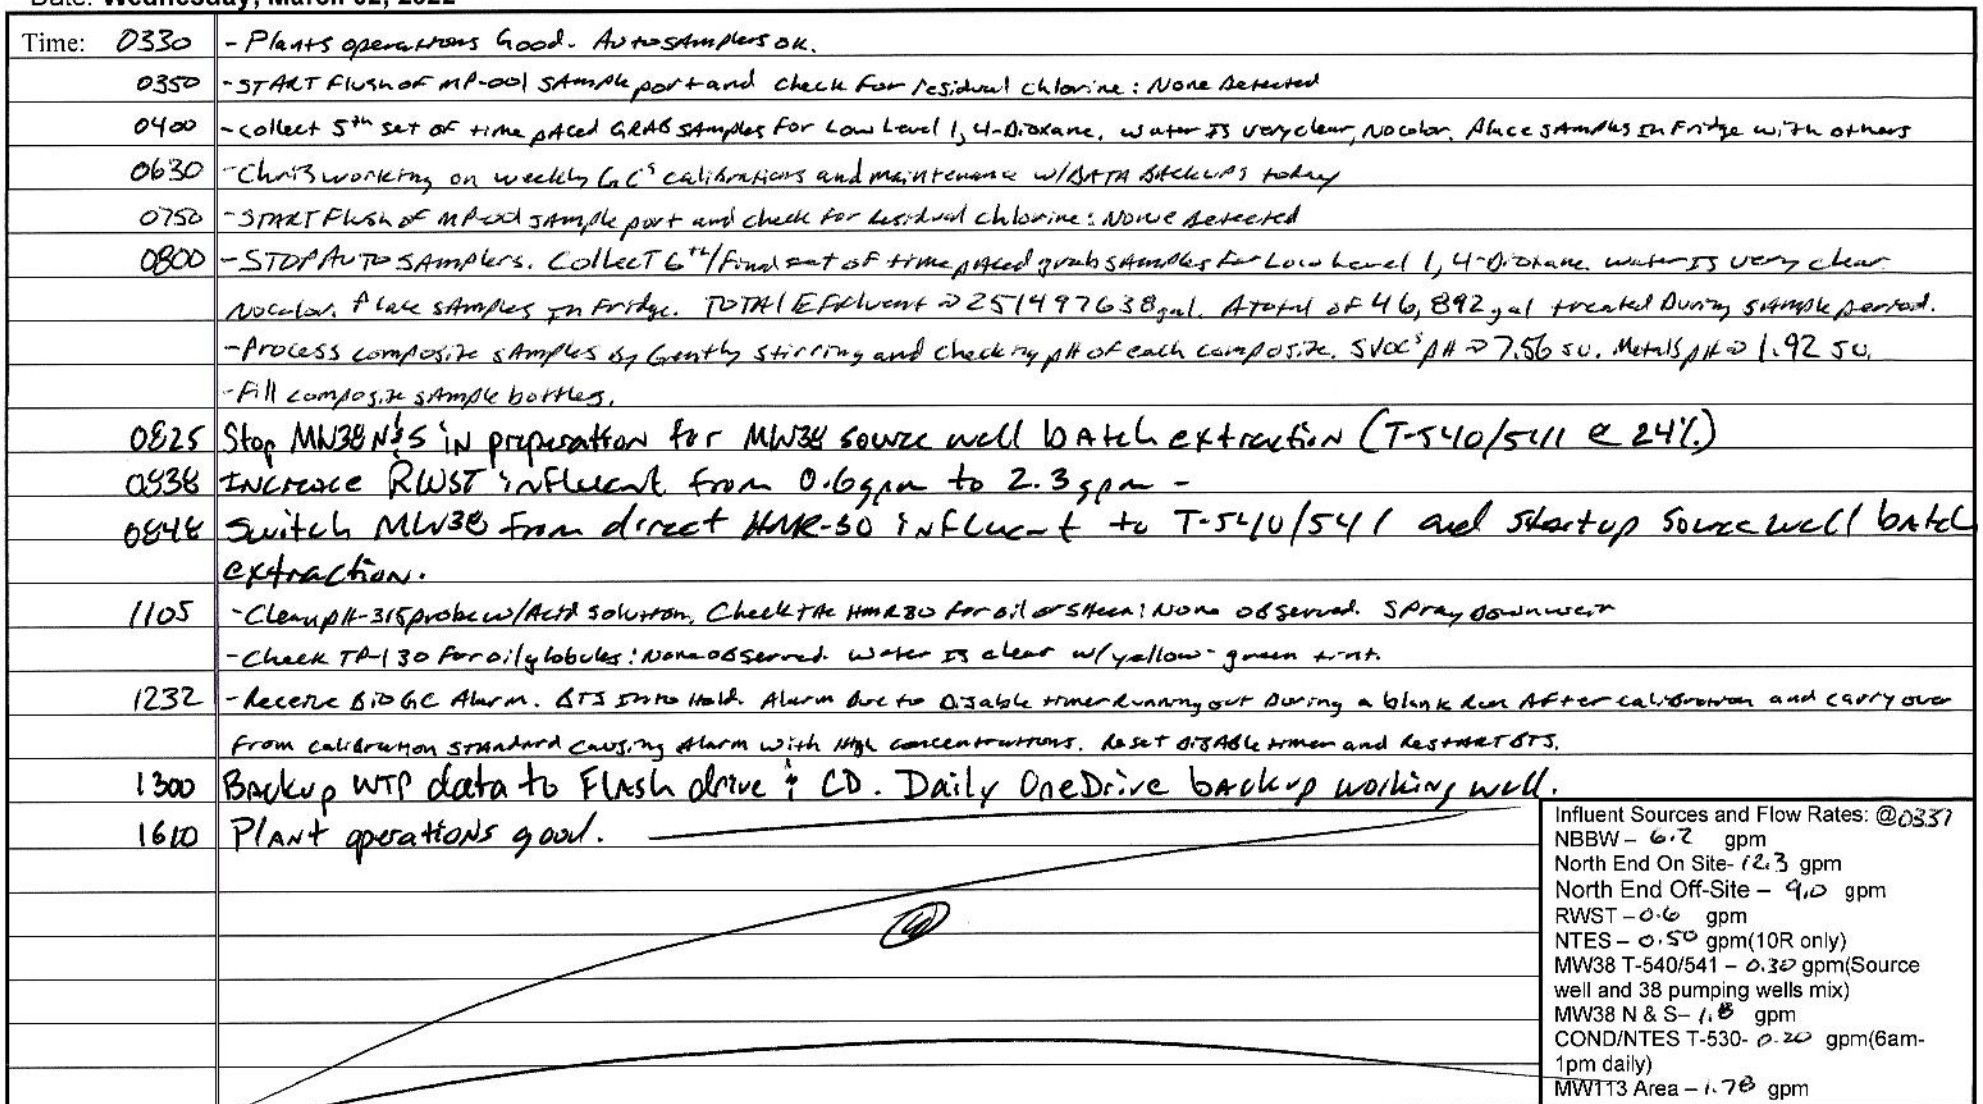 Date: Wednesday, March 02, 2022
Time: 0330 - Plants operations Good. Autosamplers OK.
0350 - START Flush of MP-001 sample port and check for residual chlorine: None Detected
0400 - collect 5th set of time paced GRAB samples for Low Level 1,4-Dioxane. Water is very clear, No color. Place samples in Fridge with others
0630 - Chris working on weekly GC's calibrations and maintenance w/DATA BACKUPS today
0750 - START Flush of MP-001 sample port and check for residual chlorine: None Detected
0800 - STOP AUTOSAMPLERS. Collect 6th/final set of time paced grab samples for Low Level 1,4-Dioxane. Water is very clear
No color. Place samples in Fridge. TOTAL Effluent → 251497638 gal. A total of 46,892 gal treated During sample period.
- Process composite samples by Gently stirring and checking pH of each composite. SVOC's pH → 7.56 su. Metals pH → 1.92 su.
- Fill composite sample bottles.
0825 Stop MW38 N&S in preparation for MW38 source well batch extraction (T-540/541 @ 24%)
0838 Increase RWST influent from 0.6gpm to 2.3gpm -
0848 Switch MW38 from direct HMR-30 influent to T-540/541 and startup source well batch
extraction.
1105 - Clean pH-315 probe w/Acid solution. Check the HMR30 for oil or sheen: None observed. Spray down weir
- Check TP-130 for oily globules: None observed. Water is clear w/yellow-green tint.
1232 - Receive BIO GC Alarm. BTS Into Hold. Alarm Due to Disable timer Running out During a blank Run After calibration and carry over
from calibration standard causing Alarm with High concentrations. Reset DISABLE timer and RESTART BTS.
1300 Backup WTP data to Flash drive & CD. Daily OneDrive backup working well.
1610 Plant operations good.
Influent Sources and Flow Rates: @0337
NBBW – 6.2 gpm
North End On Site- 12.3 gpm
North End Off-Site – 9.0 gpm
RWST – 0.6 gpm
NTES – 0.50 gpm(10R only)
MW38 T-540/541 – 0.30 gpm(Source
well and 38 pumping wells mix)
MW38 N & S– 1.8 gpm
COND/NTES T-530- 0.20 gpm(6am-
1pm daily)
MW113 Area – 1.78 gpm